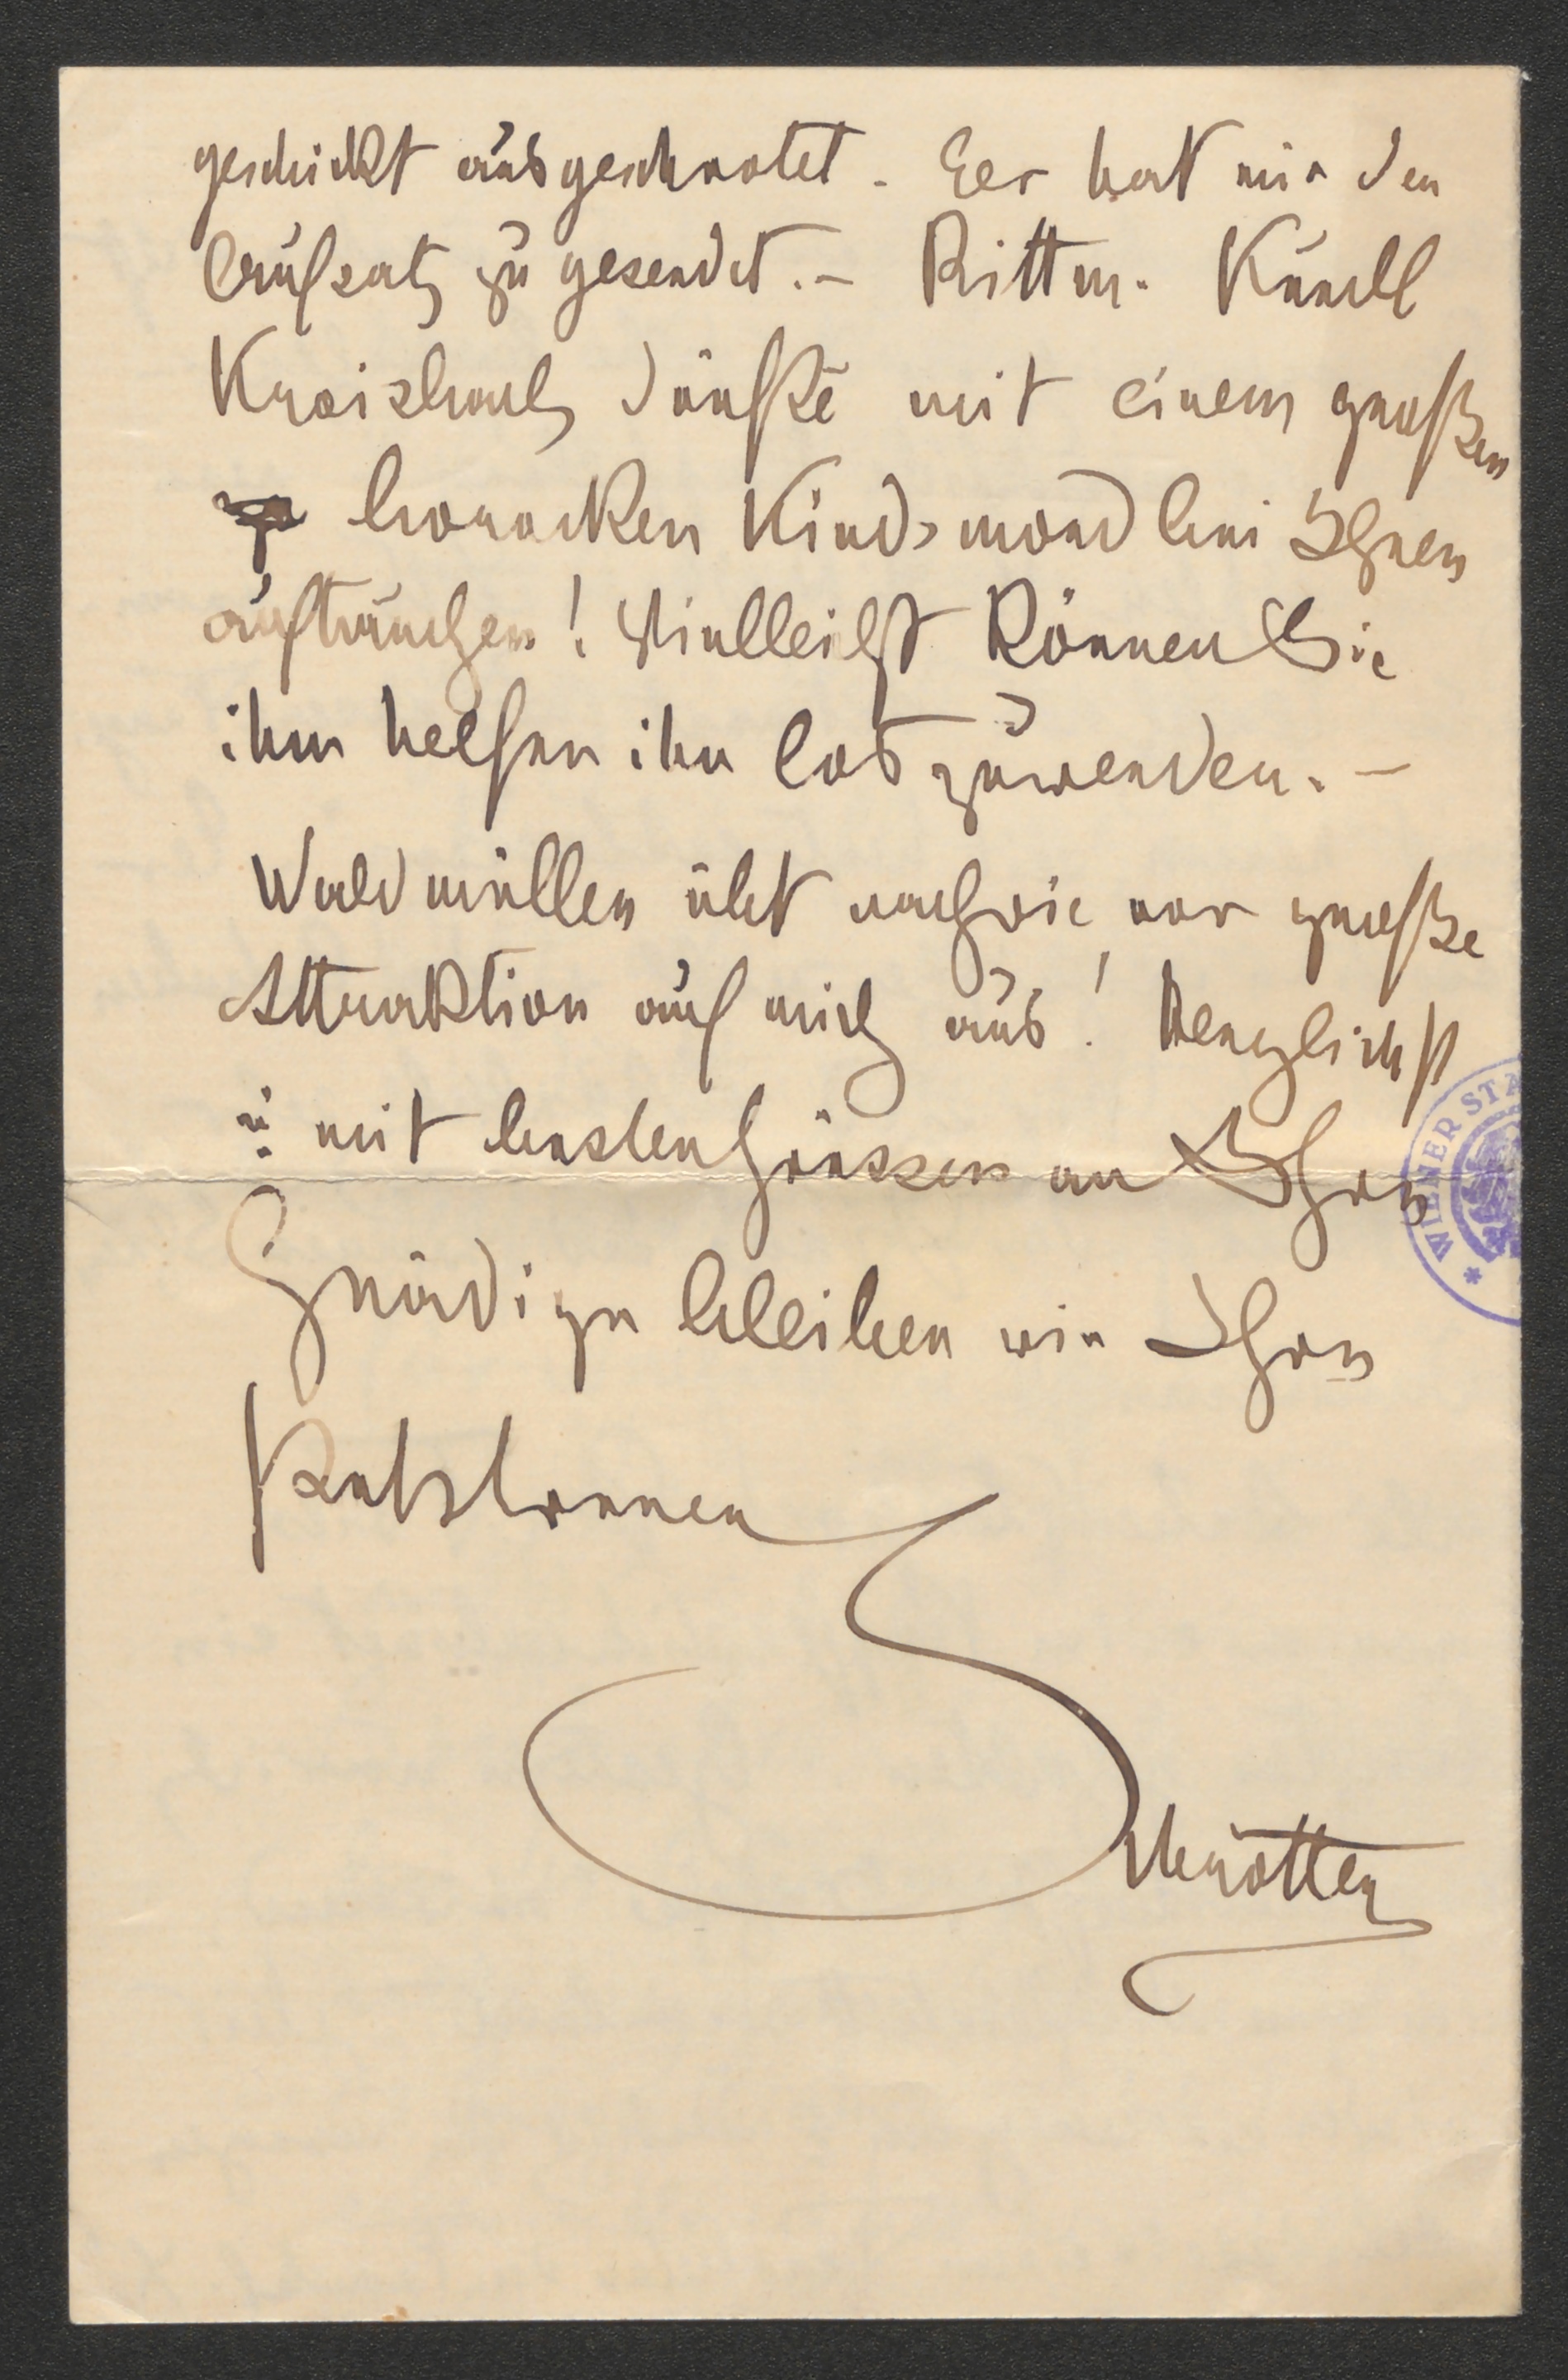 geschickt ausgeschrotet. Er hat mir den
Aufsatz zugesendet. – Rittm. Künell
Kroisbach dürfte mit einem großen
barocken Kindsmord bei Ihnen
auftauchen! Vielleicht können Sie
ihm helfen ihn loszuwerden. –
Waldmüller übt nach wie vor große
Attraktion auf mich aus! Herzlichst
u. mit besten Grüssen an Ihre
Gnädige bleiben wir Ihre
Katzianer
Schrötter
WIENER STA